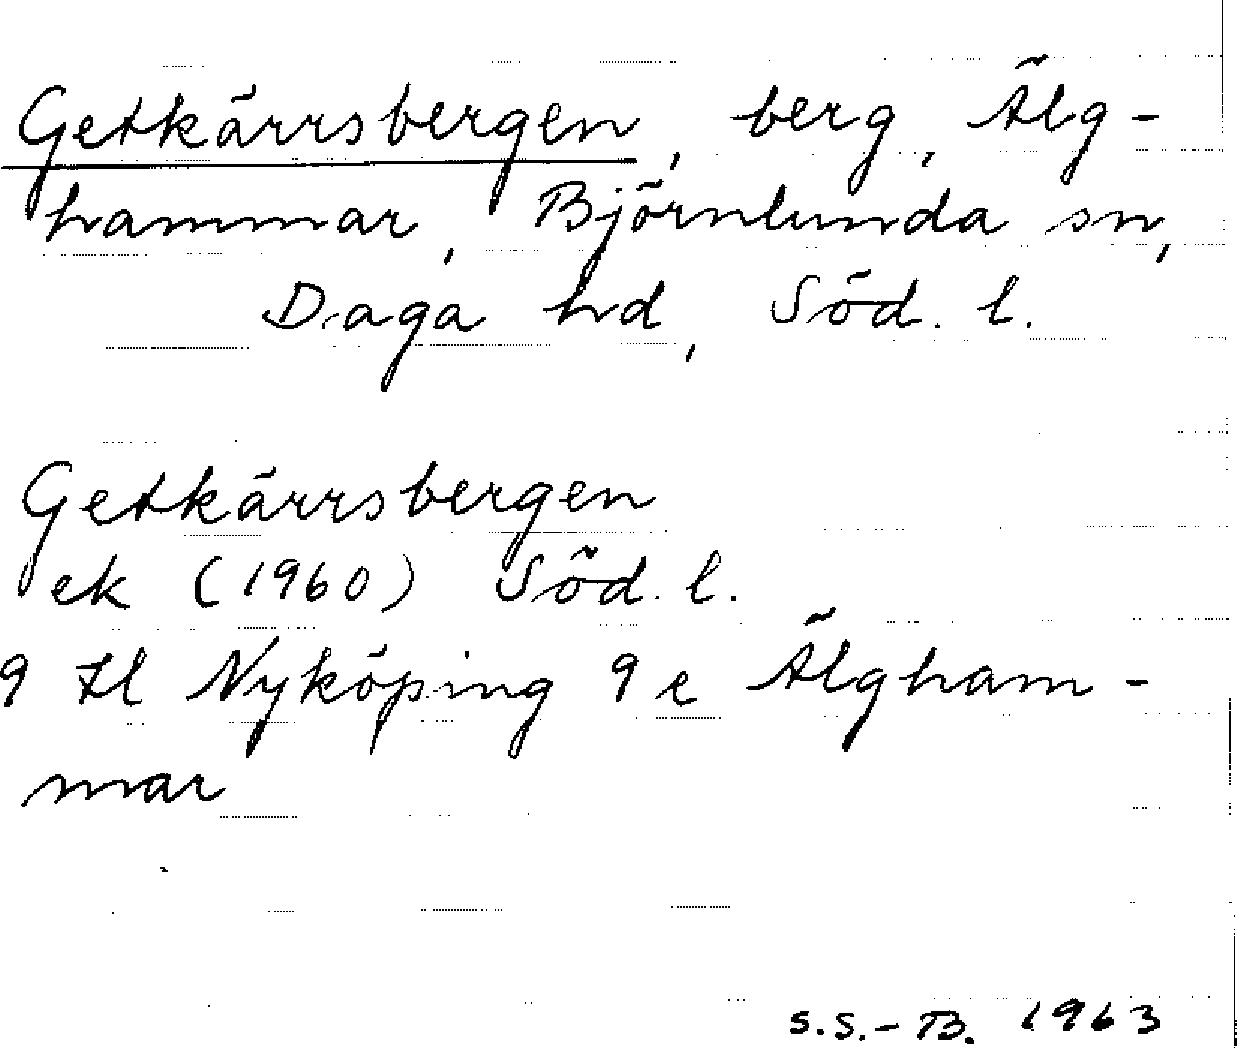 Getkärrsbergen, berg, Älg-
hammar, Björnlunda sn,
Daga hd, Söd. l.
Getkärrsbergen
ek (1960) Söd. l.
9 H Nyköping 9 e Älgham-
mar
S.S.-B. 1963